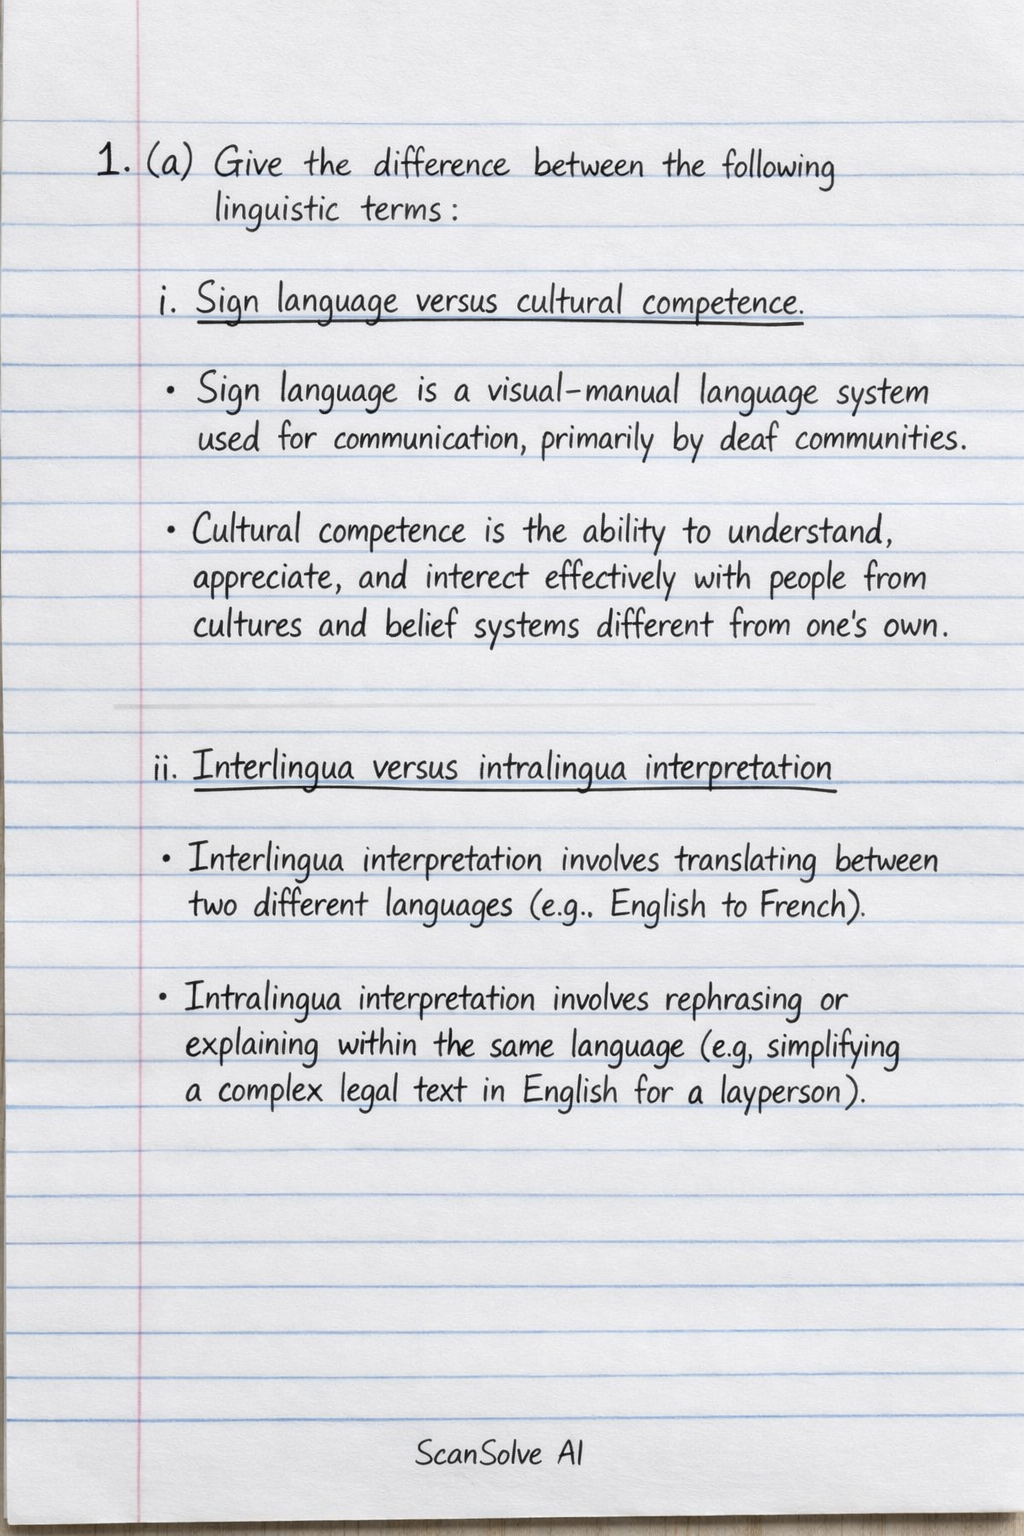 1. (a) Give the difference between the following
linguistic terms :
i. Sign language versus cultural competence.
• Sign language is a visual-manual language system
used for communication, primarily by deaf communities.
• Cultural competence is the ability to understand,
appreciate, and interect effectively with people from
cultures and belief systems different from one's own.
ii. Interlingua versus intralingua interpretation
• Interlingua interpretation involves translating between
two different languages (e.g.. English to French).
• Intralingua interpretation involves rephrasing or
explaining within the same language (e.g, simplifying
a complex legal text in English for a layperson).
ScanSolve AI